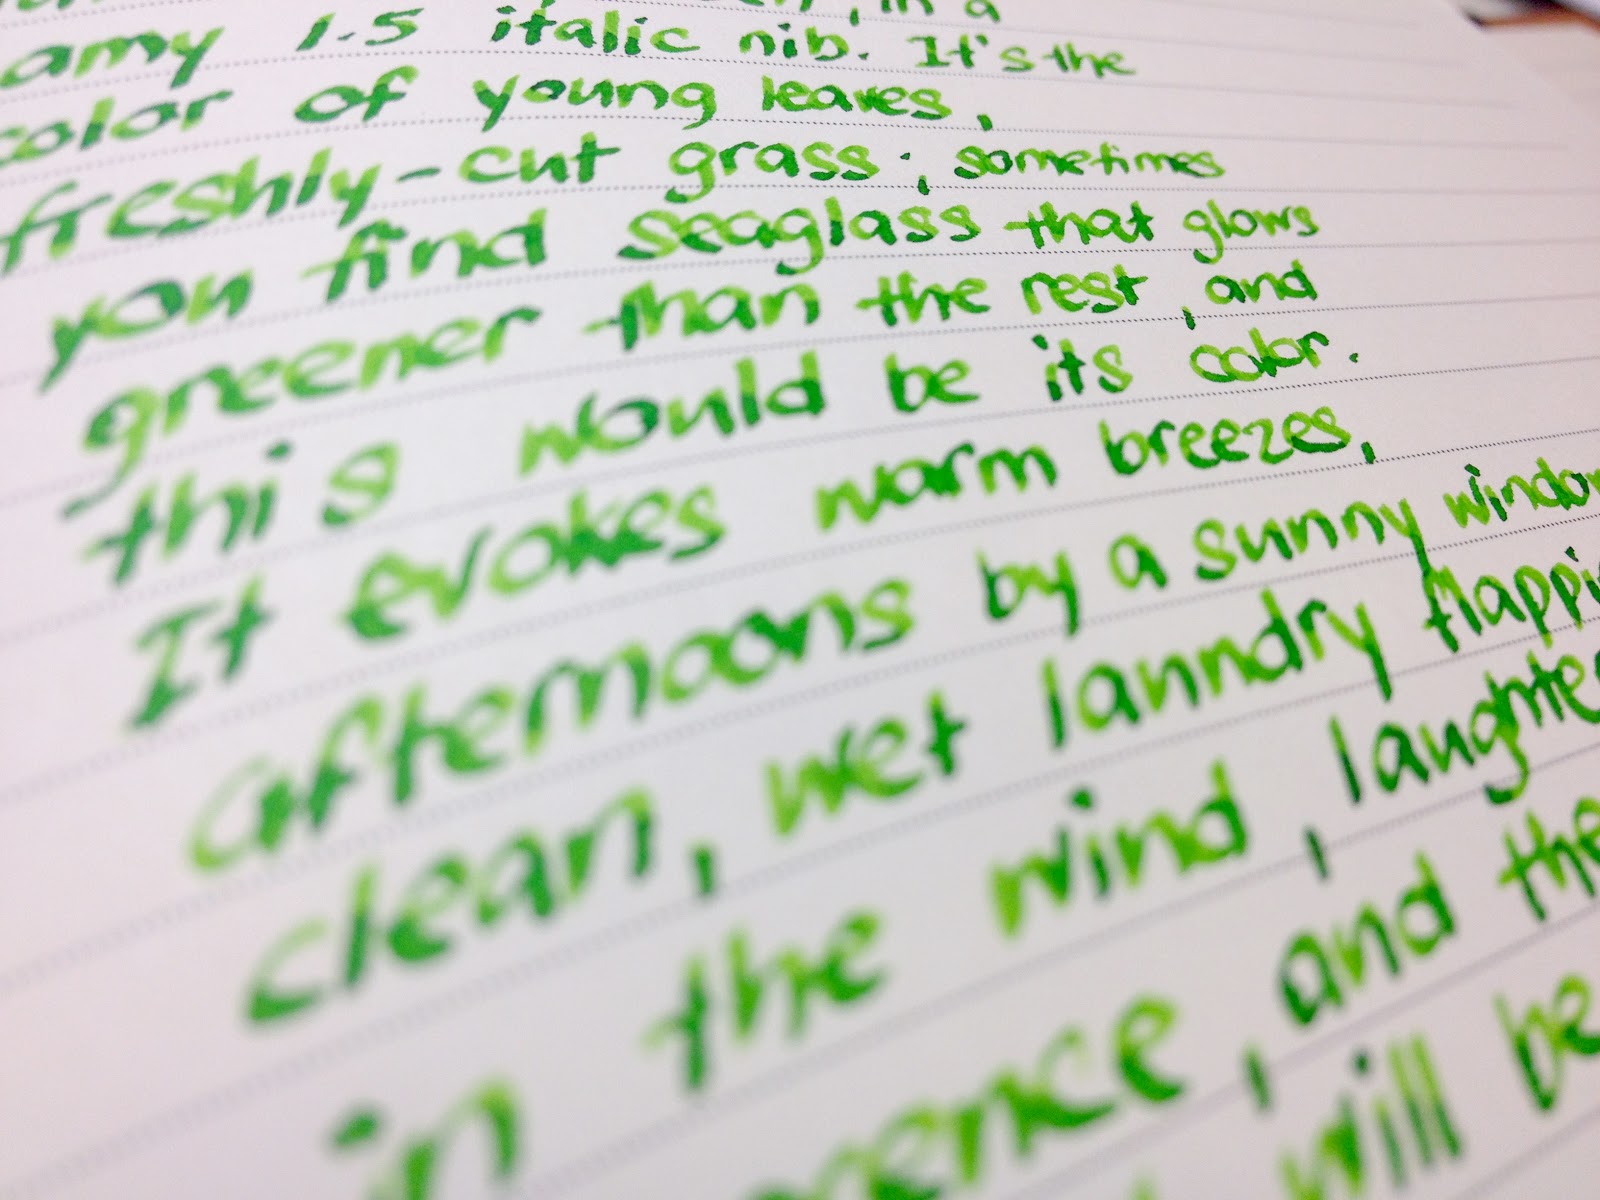 , in a
amy 1.5 italic nib. It's the
color of young leaves,
freshly-cut grass; sometimes
you find seaglass that glows
greener than the rest, and
this would be its color.
It evokes warm breezes,
afternoons by a sunny windo
clean, wet laundry flappi
in the wind, laughte
ence, and the
will be